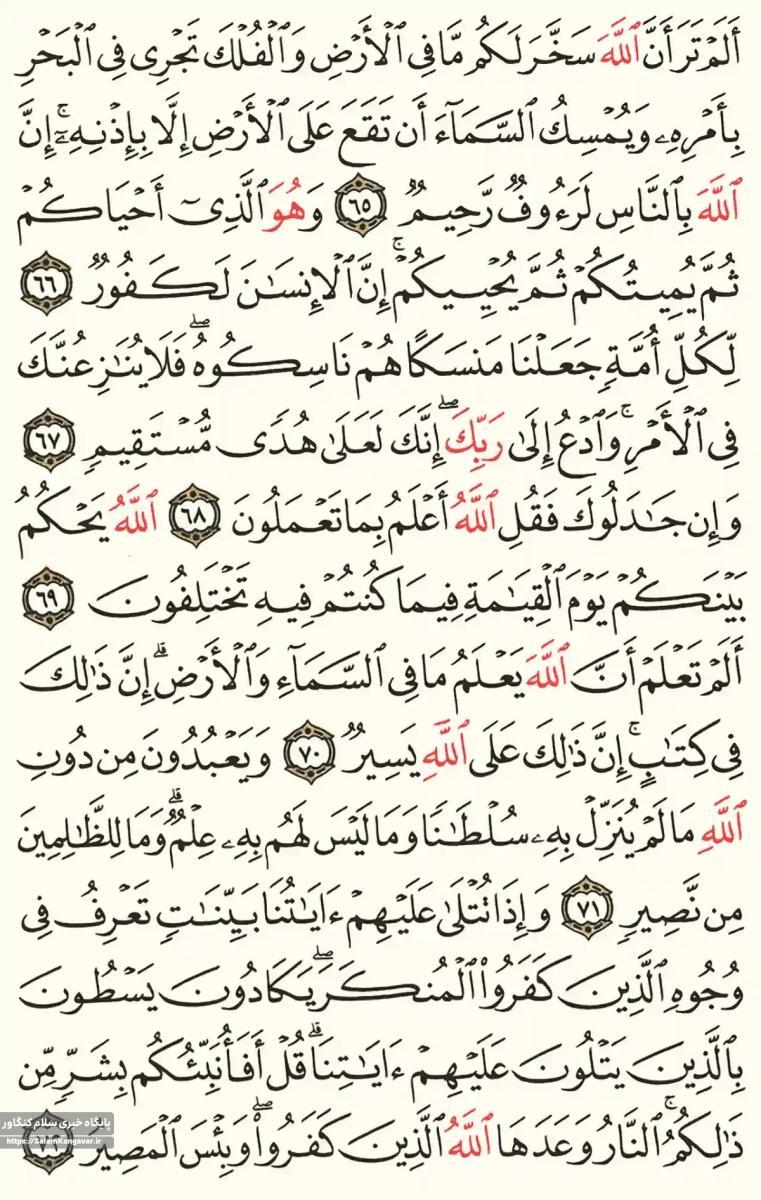 أَلَمْ تَرَ أَنَّ ٱللَّهَ سَخَّرَ لَكُم مَّا فِى ٱلْأَرْضِ وَٱلْفُلْكَ تَجْرِى فِى ٱلْبَحْرِ
بِأَمْرِهِۦ وَيُمْسِكُ ٱلسَّمَآءَ أَن تَقَعَ عَلَى ٱلْأَرْضِ إِلَّا بِإِذْنِهِۦٓ ۚ إِنَّ
ٱللَّهَ بِٱلنَّاسِ لَرَءُوفٌ رَّحِيمٌ ٦٥ وَهُوَ ٱلَّذِىٓ أَحْيَاكُمْ
ثُمَّ يُمِيتُكُمْ ثُمَّ يُحْيِيكُمْ ۗ إِنَّ ٱلْإِنسَـٰنَ لَكَفُورٌ ٦٦
لِّكُلِّ أُمَّةٍ جَعَلْنَا مَنسَكًا هُمْ نَاسِكُوهُ ۖ فَلَا يُنَـٰزِعُنَّكَ
فِى ٱلْأَمْرِ ۚ وَٱدْعُ إِلَىٰ رَبِّكَ ۖ إِنَّكَ لَعَلَىٰ هُدًى مُّسْتَقِيمٍ ٦٧
وَإِن جَـٰدَلُوكَ فَقُلِ ٱللَّهُ أَعْلَمُ بِمَا تَعْمَلُونَ ٦٨ ٱللَّهُ يَحْكُمُ
بَيْنَكُمْ يَوْمَ ٱلْقِيَـٰمَةِ فِيمَا كُنتُمْ فِيهِ تَخْتَلِفُونَ ٦٩
أَلَمْ تَعْلَمْ أَنَّ ٱللَّهَ يَعْلَمُ مَا فِى ٱلسَّمَآءِ وَٱلْأَرْضِ ۗ إِنَّ ذَٰلِكَ
فِى كِتَـٰبٍ ۚ إِنَّ ذَٰلِكَ عَلَى ٱللَّهِ يَسِيرٌ ٧٠ وَيَعْبُدُونَ مِن دُونِ
ٱللَّهِ مَا لَمْ يُنَزِّلْ بِهِۦ سُلْطَـٰنًا وَمَا لَيْسَ لَهُم بِهِۦ عِلْمٌ ۗ وَمَا لِلظَّـٰلِمِينَ
مِن نَّصِيرٍ ٧١ وَإِذَا تُتْلَىٰ عَلَيْهِمْ ءَايَـٰتُنَا بَيِّنَـٰتٍ تَعْرِفُ فِى
وُجُوهِ ٱلَّذِينَ كَفَرُوا۟ ٱلْمُنكَرَ ۖ يَكَادُونَ يَسْطُونَ
بِٱلَّذِينَ يَتْلُونَ عَلَيْهِمْ ءَايَـٰتِنَا ۗ قُلْ أَفَأُنَبِّئُكُم بِشَرٍّ مِّن
ذَٰلِكُمُ ۚ ٱلنَّارُ وَعَدَهَا ٱللَّهُ ٱلَّذِينَ كَفَرُوا۟ ۖ وَبِئْسَ ٱلْمَصِيرُ ٧٢
پایگاه خبری سلام کنگاور
https://SalamKangavar.ir